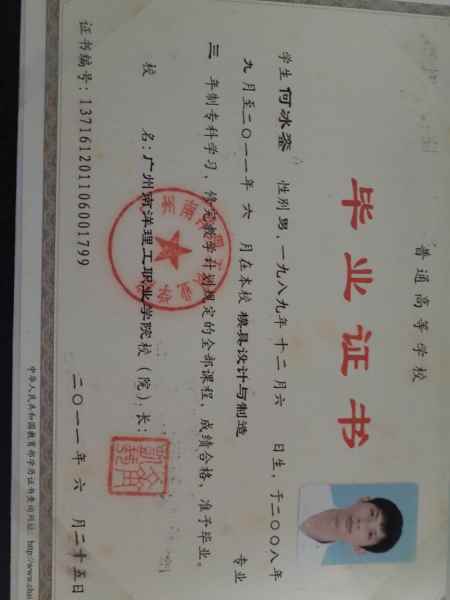 普通高等学校
毕业证书
学生 何冰銮 性别 男，一九八九年 十二月 六 日生，于二〇〇八年
九 月至二〇一一年 六 月在本校 模具设计与制造 专业
三 年制专科学习，修完教学计划规定的全部课程，成绩合格，准予毕业。
校 名：广州南洋理工职业学院 校（院）长：
证书编号：137161201106001799 二〇一一年 六 月二十五日
中华人民共和国教育部学历证书查询网址：http://www.chsi